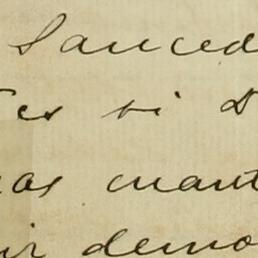 Sauced
tes si
as cuant
ir demo